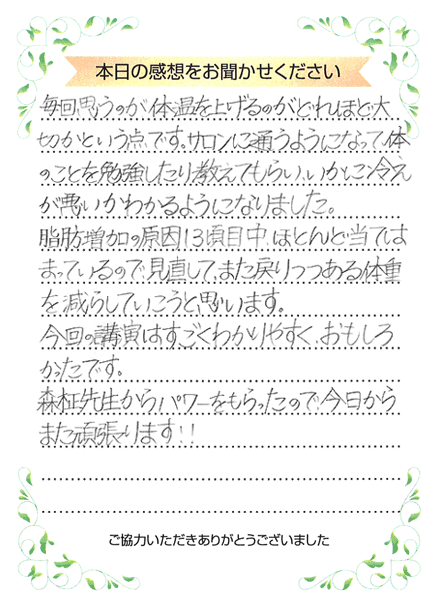 本日の感想をお聞かせください
毎回思うのが体温を上げるのがどれほど大
切かという点です。サロンに通うようになって、体
のことを勉強したり教えてもらい、いかに冷え
が悪いかわかるようになりました。
脂肪増加の原因13項目中、ほとんど当ては
まっているので見直して、また戻りつつある体重
を減らしていこうと思います。
今回の講演はすごくわかりやすく、おもしろ
かったです。
森柾先生からパワーをもらったので今日から
また頑張ります!!
ご協力いただきありがとうございました